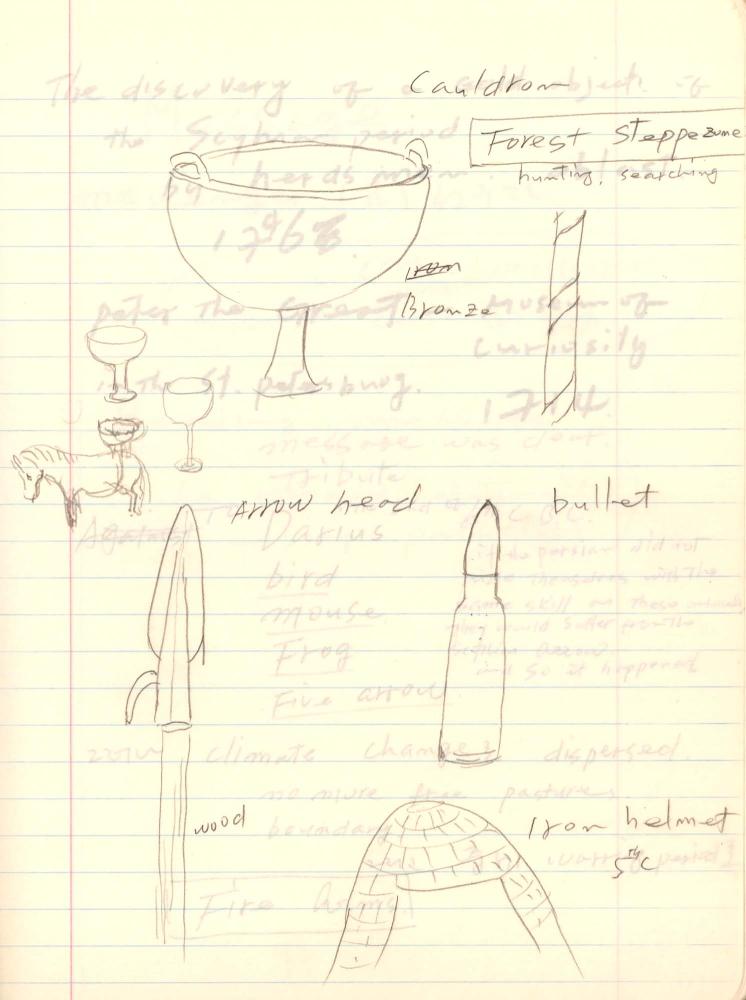 Cauldron
The discovery of a gold object of
Forest Steppe zone
the Scythian period
hunting, searching
by herdsman.
Iron
Bronze
Peter the Great Museum of
curiosity
in the St. petersburg.
1714
message was clear.
Tribute
Arrow head
bullet
Against
Darius
if do persian did not
bird
themselves with the
mouse
same skill as these animals
they would suffer from the
Frog
Scythian arrow.
and so it happened
Five arrow
climate change? dispersed.
no more free pastures
wood
boundary
Iron helmet
5th C
warring period?
Fire Arms!